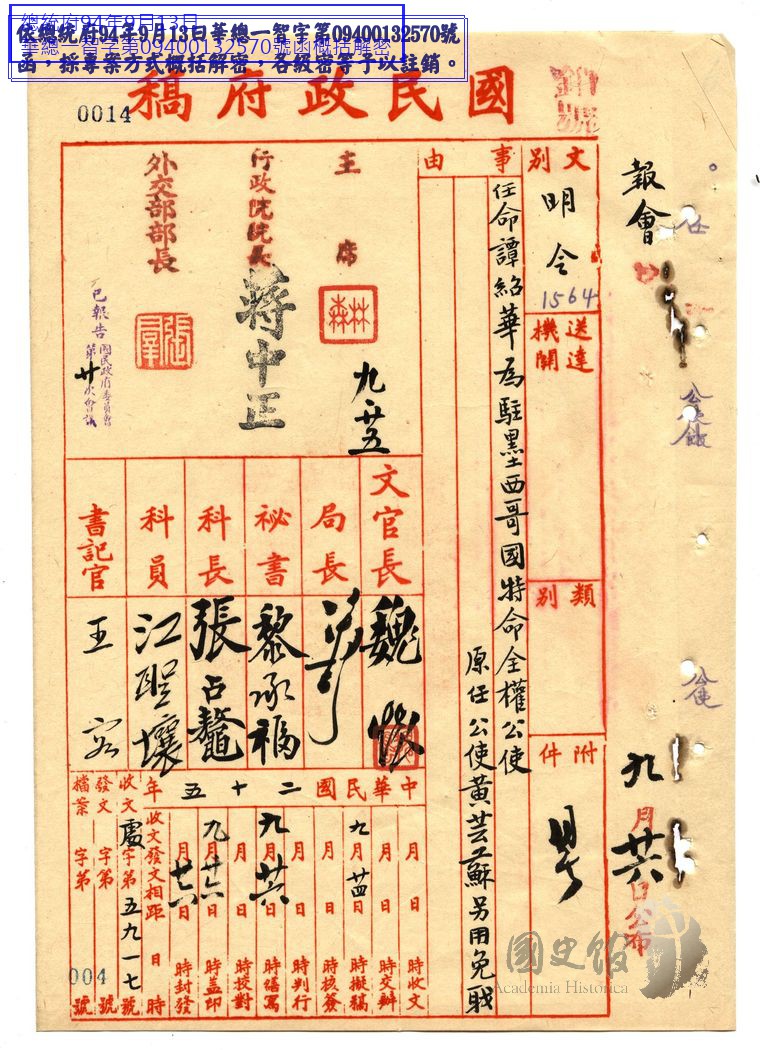 總統府94年9月13日
華總一智字第09400132570號函概括解密
依總統府94年9月13日華總一智字第09400132570號
函，採專案方式概括解密，各級密等予以註銷。
0014
國民政府稿
報會
文別
明令
1564
送達機關
類別
附件
事由
任命譚紹華為駐墨西哥國特命全權公使
原任公使黃芸蘇另用免職
主席
林森
九、廿五
行政院院長
蔣中正
外交部部長
張羣
已報告國民政府委員會第廿次會議
文官長
魏懷
局長
祕書
黎承福
科長
張占鼇
科員
書記官
王
中華民國二十五年
月 日 時收文
月 日 時交辦
九月廿四日 時擬稿
月 日 時核簽
月 日 時判行
九月廿六日 時繕寫
月 日 時校對
九月廿六日 時蓋印
月廿六日 時封發
收文發文相距 日 時
收文處字第五九一七號
發文 字第 號
檔案 字第 號
004
九月廿六日公布
公使
國史館
Academia Historica